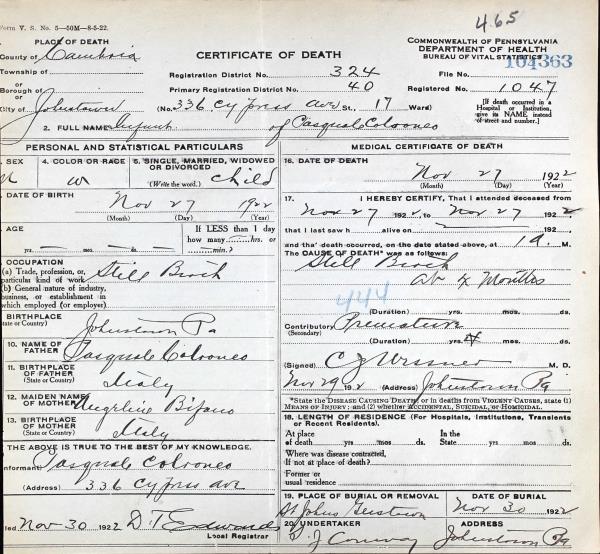 465
Form V. S. No. 5—50M—8-5-22.
PLACE OF DEATH
County of Cambria
Township of
or
Borough of
or
City of Johnstown
CERTIFICATE OF DEATH
Registration District No. 324
Primary Registration District No. 40
(No. 336 Cypress Ave St., 17 Ward)
COMMONWEALTH OF PENNSYLVANIA
DEPARTMENT OF HEALTH
BUREAU OF VITAL STATISTICS
File No. 104363
Registered No. 1047
[If death occurred in a Hospital or Institution, give its NAME instead of street and number.]
2. FULL NAME Infant of Pasquale Colrones
PERSONAL AND STATISTICAL PARTICULARS
SEX
M
4. COLOR OR RACE
W
5. SINGLE, MARRIED, WIDOWED OR DIVORCED
(Write the word.) Child
DATE OF BIRTH
Nov 27 1922
(Month) (Day) (Year)
AGE
yrs. mos. ds.
If LESS than 1 day
how many hrs. or
min.?
OCCUPATION
(a) Trade, profession, or particular kind of work Still Birth
(b) General nature of industry, business, or establishment in which employed (or employer)
BIRTHPLACE
(State or Country) Johnstown Pa
10. NAME OF FATHER Pasquale Colrones
11. BIRTHPLACE OF FATHER
(State or Country) Italy
12. MAIDEN NAME OF MOTHER Angeline Bifano
13. BIRTHPLACE OF MOTHER
(State or Country) Italy
THE ABOVE IS TRUE TO THE BEST OF MY KNOWLEDGE.
Informant Pasquale Colrones
(Address) 336 Cypress ave
Nov 30 1922 D. T. Edwards
Local Registrar
MEDICAL CERTIFICATE OF DEATH
16. DATE OF DEATH
Nov 27 1922
(Month) (Day) (Year)
17. I HEREBY CERTIFY, That I attended deceased from
Nov 27 1922, to Nov 27 1922
that I last saw h alive on 192
and that death occurred, on the date stated above, at 1 a. M.
The CAUSE OF DEATH* was as follows:
Still Birth
at 4 Months
444
(Duration) yrs. mos. ds.
Contributory Premature
(Secondary)
(Duration) yrs. mos. ds.
(Signed) M. D.
Nov 29 192 (Address) Johnstown Pa
*State the DISEASE CAUSING DEATH; or in deaths from VIOLENT CAUSES, state (1) MEANS OF INJURY; and (2) whether ACCIDENTAL, SUICIDAL, or HOMICIDAL.
18. LENGTH OF RESIDENCE (For Hospitals, Institutions, Transients or Recent Residents).
At place of death yrs mos ds. In the State yrs. mos. ds.
Where was disease contracted,
If not at place of death?
Former or usual residence
19. PLACE OF BURIAL OR REMOVAL
St Johns Geistown
DATE OF BURIAL
Nov 30 1922
20. UNDERTAKER
J Conway
ADDRESS
Johnstown Pa